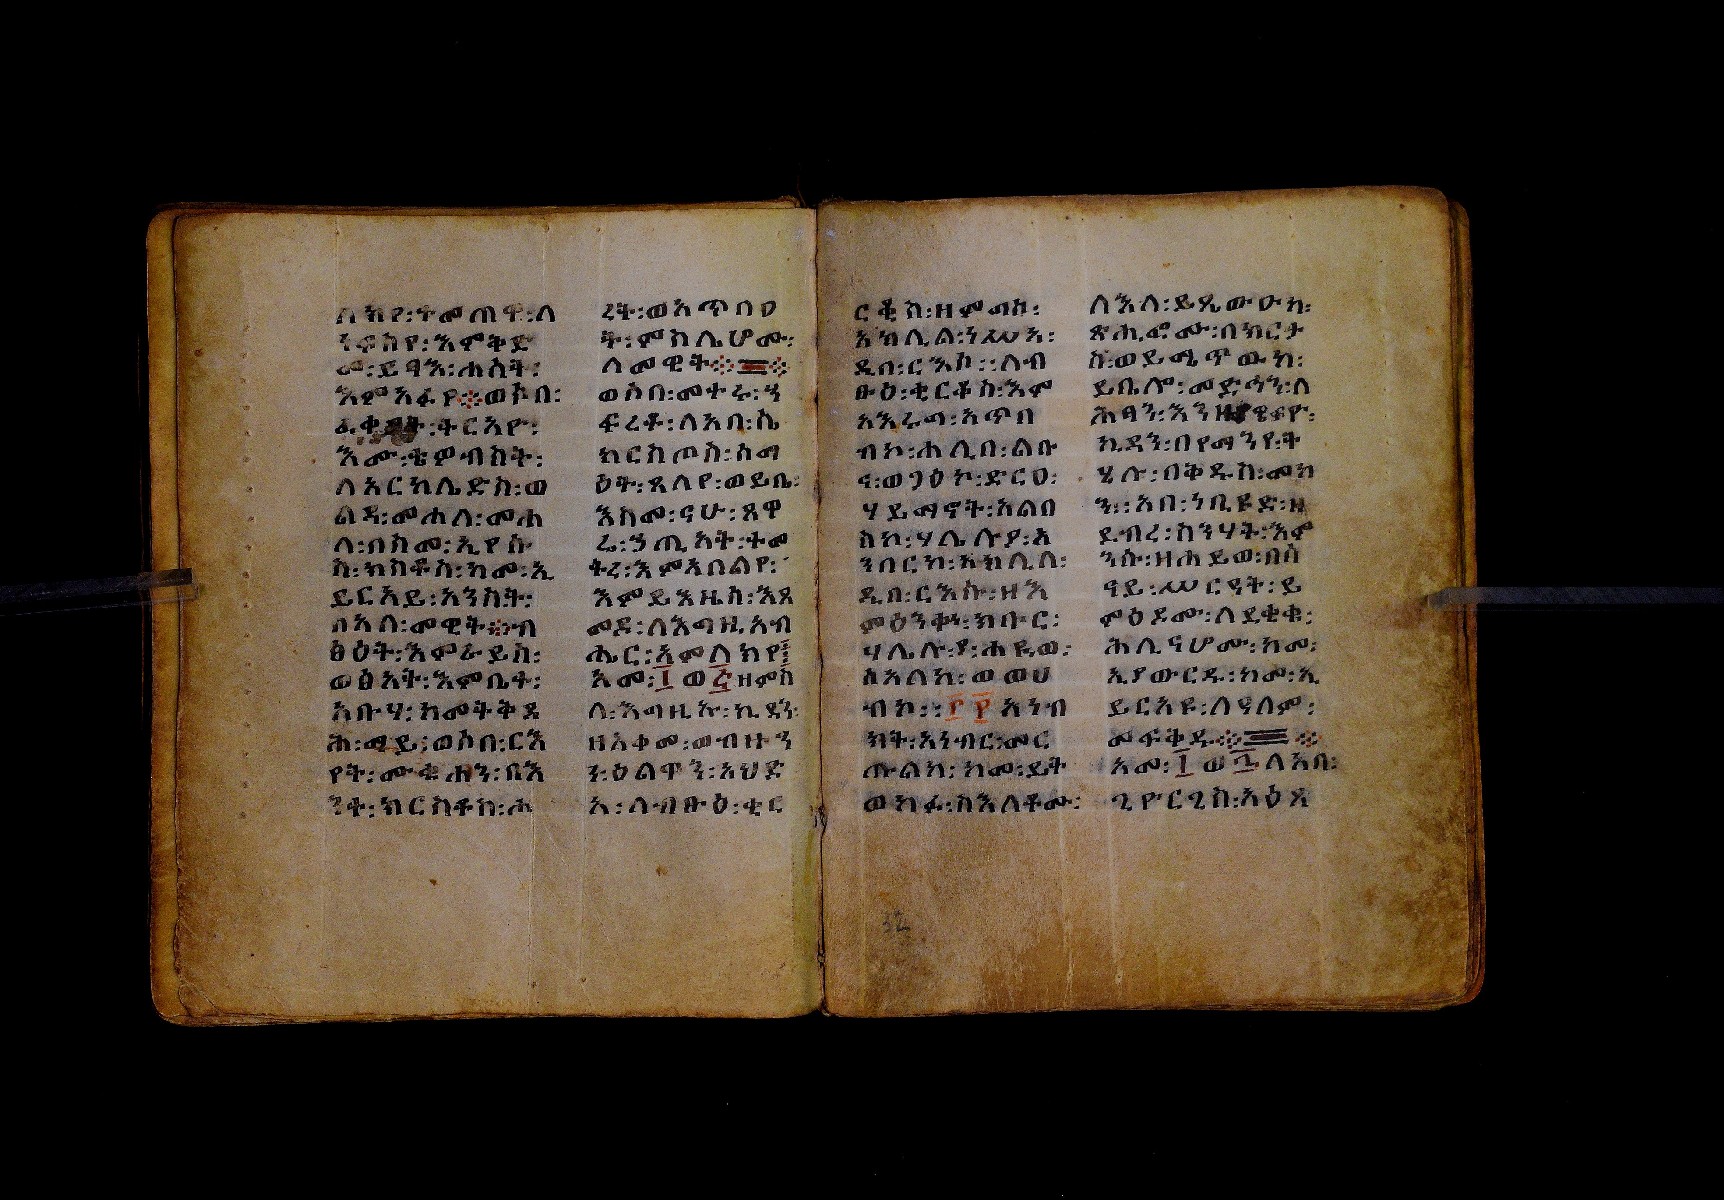 ሰክየ፡ተመጠዋ፡ለ
ነፍስየ፡እምቅድ
መ፡ይፃእ፡ሐሰት፡
እምአፉየ።ወሶበ፡
ትርአዮ፡
እሙ፡ቴዎብስት፡
ለአርከሌድስ፡ወ
ልዳ፡መሐለ፡መሐ
ላ፡በስመ፡ኢየሱ
ስ፡ክስቶስ፡ከመ፡ኢ
ይርአይ፡አንስት፡
በአለ፡መዊት።ብ
ፅዕት፡እምራይስ፡
ወፅአት፡እምቤተ፡
አቡሃ፡ከመትቅዳ
ሕ፡ማይ፡ወሶበ፡ርእ
የት፡ሙቁሐን፡በእ
ንተ፡ክርስቶስ፡ሖ
ረት፡ወአጥበዐ
ት፡ምስሌሆሙ፡
ለመዊት።
ወሶበ፡መተሩ፡ኃ
ፍረቶ፡ለአባ፡ሴ
ክርስጦስ፡ስማ
ዕት፡ጸለየ፡ወይቤ፡
እስመ፡ናሁ፡ጸዋ
ሬ፡ኃጢአት፡ተመ
ትረ፡እምአበልየ፡
እምይእዜስ፡እጸ
መድ፡ለእግዚአብ
ሔር፡አምላክየ፤
አመ፡፲ወ፭ዘምስ
ለ፡እግዚኡ፡ኪዳን፡
ዘአቀመ፡ወብዙኅ
ን፡ዕልዋን፡አህድ
አ፡ለብፁዕ፡ቂር
ርቂስ፡ዘምግስ፡
አክሊል፡ነሢአ፡
ዲበ፡ርእሶ፡፡ለብ
ፁዕ፡ቂርቆስ፡እም
አእሩግ፡አጥበ
ብኮ፡ሐሊበ፡ልቡ
ና፡ወጎዕኮ፡ድርዐ፡
ሃይማኖት፡አልበ
ስኮ፡ሃሌሉያ፡አ
ንበርከ፡አክሊለ፡
ዲበ፡ርእሱ፡ዘእ
ምዕንቍ፡ክቡር፡
ሃሌሉ፡ያ፡ሐይወ፡
ስአለከ፡ወወሀ
ብኮ፡፡፻፻አነብ
ክት፡አነብር፡መር
ጡልከ፡ከመ፡ይት
ወከፉ፡ስእለቶሙ፡
ለእለ፡ይጼውዑከ፡
ጽሒፎሙ፡በክርታ
ስ፡ወይሜጥውከ፡
ይቤሎ፡መድኃን፡ለ
ሕፃን፡እንዘ
ኪዳን፡በየማንየ፡ት
ሄሉ፡በቅዱስ፡መካ
ን፡፡አባ፡ነቢዩድ፡ዘ
ደብረ፡ስንሃት፡እም
ንሱ፡ዘሐይወ፡በሰ
ዓይ፡ሠርዳት፡ይ
ምዕዶሙ፡ለደቂቁ፡
ሕሊናሆሙ፡ከመ፡
ኢያውርዱ፡ከመ፡ኢ
ይርአዩ፡ለዓለም፡
መፍቅዱ።
አመ፡፲ወ፯ለአባ፡
ጊዮርጊስ፡አዕጻ
32